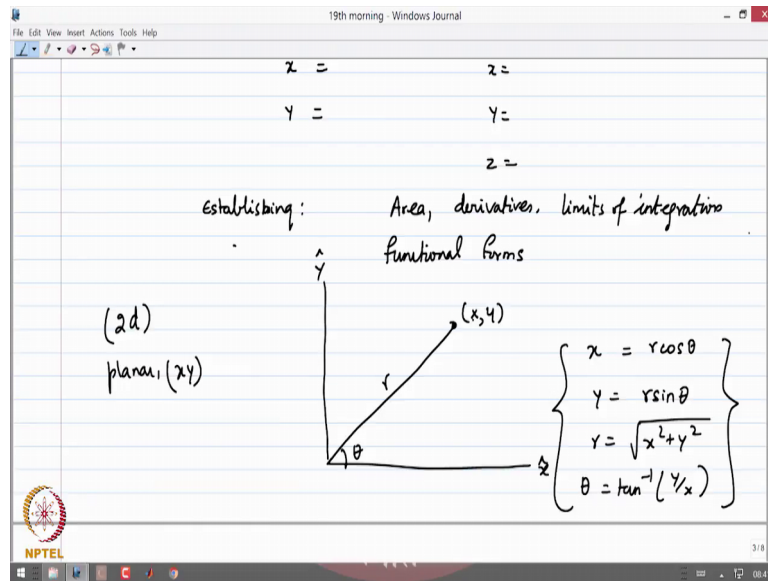 19th morning - Windows Journal
File Edit View Insert Actions Tools Help
x = x =
y = y =
z =
Establishing: Area, derivatives. limits of integrations
functional forms
ŷ
(2d)
planar, (xy)
(x,y)
r
θ
x̂
x = rcosθ
y = rsinθ
r = √x²+y²
θ = tan⁻¹(y/x)
NPTEL
3/8